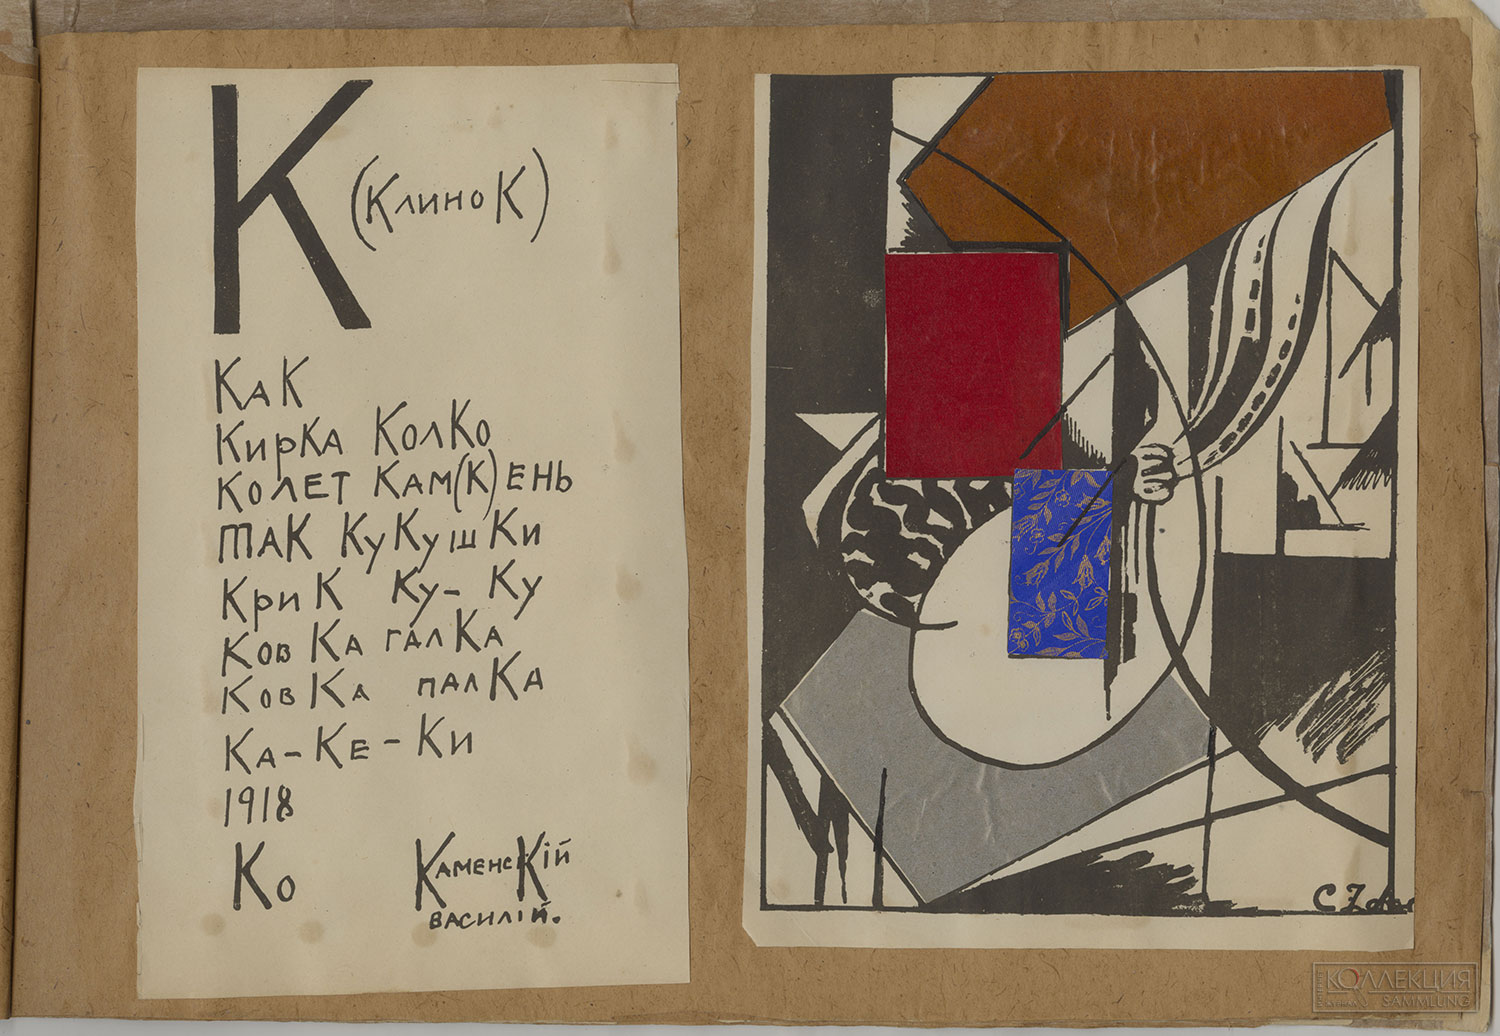 К (КлиноК)
КаК
КирКа КолКо
КолЕТ КАМ(К)ЕНЬ
ТАК КуКушКи
КриК Ку- Ку
КовКа галКа
КовКа палКа
Ка-Ке-Ки
1918
Ко КаменсКій
василій.
КОЛЛЕКЦИЯ
SAMMLUNG